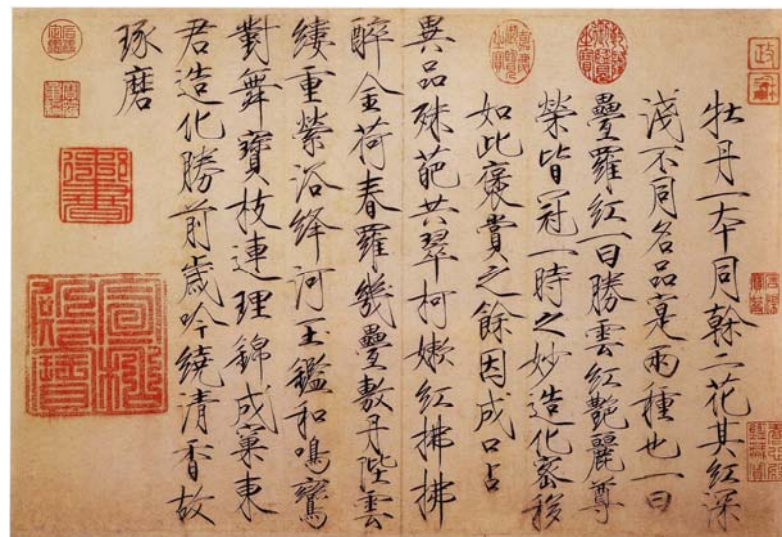 牡丹一本同幹二花其紅深
淺不同名品寔兩種也一曰
疊羅紅一曰勝雲紅艷麗尊
榮皆冠一時之妙造化密移
如此褒賞之餘因成口占
異品殊葩共翠柯嫩紅拂拂
醉金荷春羅幾疊敷丹陛雲
縷重縈浴絳河玉鑑和鳴鸞
對舞寶枝連理錦成窠東
君造化勝前歲吟繞清香故
琢磨
政龢
乾隆御覽之寶
嘉慶御覽之寶
御書